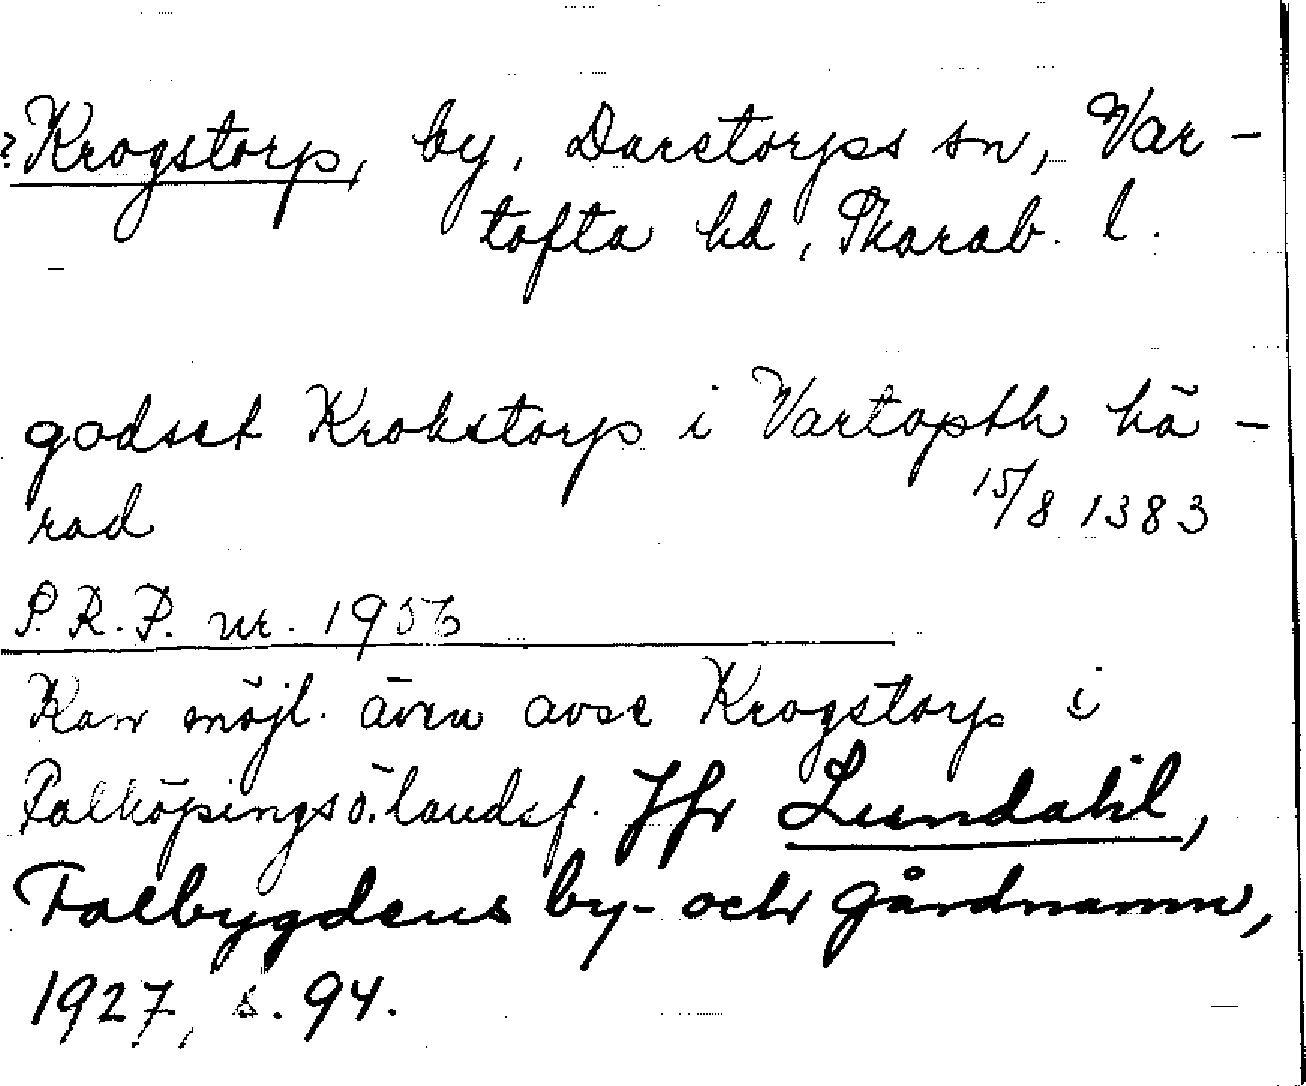 ? Krogstorp, by, Darstorps sn, Var-
tofta hd, Skarab. l.
godset Krokstorp i Vartopth hä-
rad 15/8 1383
S.R.P. nr. 1956
Kan möjl. även avse Krogstorp i
Falköpings ö. landsf. Jfr Lundahl,
Falbygdens by- och gårdnamn,
1927, s. 94.